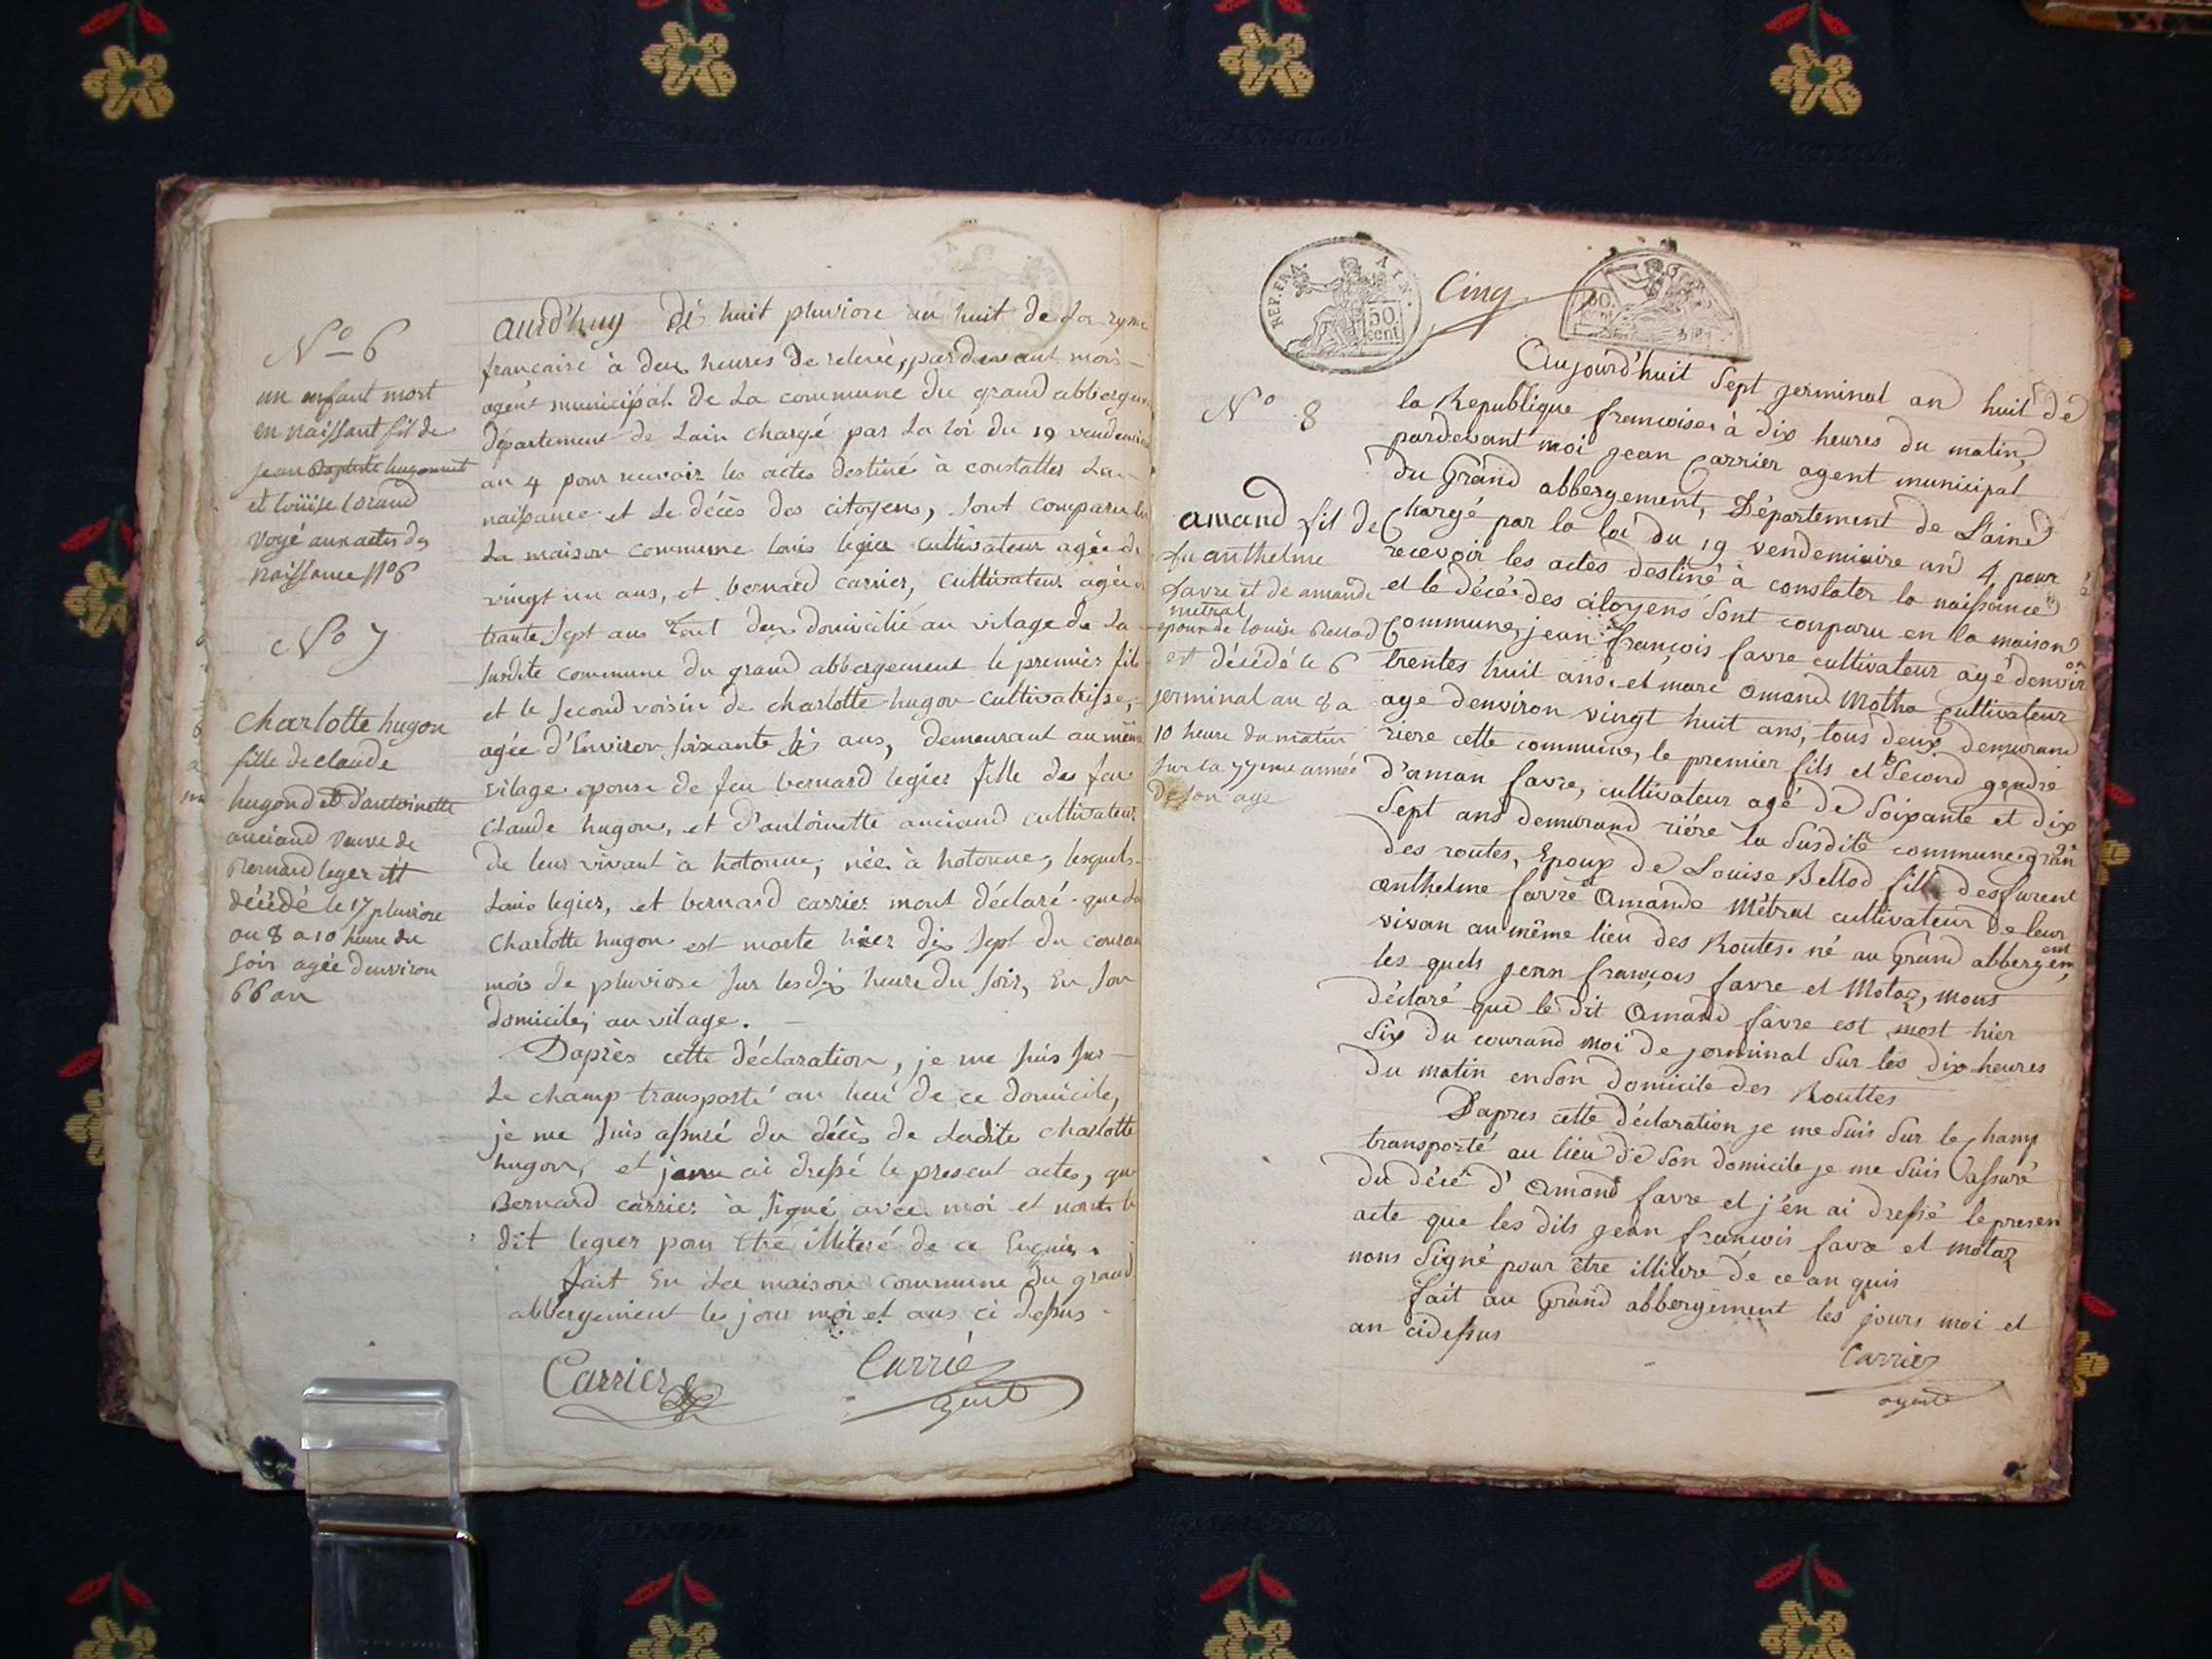 N° 6
un enfant mort
en naissant fils de
jean Baptiste hugonnet
et loüise
voyé aux actes des
naissance N° 6
N° 7
charlotte hugon
fille de claude
hugond et d'antoinette
anciand veuve de
Bernard leger est
décédé le 17 pluviose
an 8 a 10 heure du
soir agée d'environ
66 an
aurd'huy dé huit pluviose an huit de la
francaise à deux heures de relevée, pardevant moi
agent municipal de la commune du grand abberge
département de Lain chargé par la loi du 19 vendemi
an 4 pour recevoir les actes destiné à constatter la
naissance et le décès des citoyens, sont comparu
la maison commune louis legier cultivateur agée de
vingt un ans, et bernard carrier, cultivateur agée
trante sept ans tout deux domicilié au vilage de la
susdite commune du grand abbergement le premier fils
et le second voisin de charlotte hugon cultivatrisse,
agée d'Environ soixante six ans, demeurant au même
vilage epouse de feu bernard legier fille de feu
Claude hugon, et d'antoinette anciand cultivateur
de leur vivant à hotonne, née à hotonne, lesquels
Louis legier, et bernard carrier mont déclaré que la
Charlotte hugon est morte hier dix sept du couran
mois de pluviose sur les dix heure du soir, en son
domicile, au vilage.
Daprès cette déclaration, je me suis sur
le champ transporté au lieu de ce domicile,
je me suis assuré du décès de ladite charlotte
hugon, et jenn ai dressé le present actes, que
Bernard carrier à signé avec moi et nont le
dit legier pour être illiteré de ce Enquis.
fait en la maison commune du grand
abbergement les jour moi et ans ci dessus
Carrier Carrier
agent
REP. FRA. AIN.
50 cent
Cinq
50.
N° 8
amand fils de
fu anthelme
favre et de amande
metral
epoux de louise Bellod
est décédé le 6
jerminal an 8 a
10 heure du matin
sur la 77eme année
de son age
Aujourd'huit sept germinal an huit dé
la Republique francoises à dix heures du matin,
pardevant moi jean Carrier agent municipal
du Grand abbergement, Département de Laine
Chargé par la loi du 19 vendemiaire an 4, pour
recevoir les actes destiné à constater la naissance
et le décé des citoyens sont conparu en la maison
Commune, jean françois favre cultivateur agé denviron
trentes huit ans, et marc amand Motha cultivateur
age denviron vingt huit ans, tous deux demurand
riere cette commune, le premier fils et second gendre
d'aman favre, cultivateur agé de soixante et dix
sept ans demurand riére la susdite commune gran
des routes, Epoux de Louise Bellod fills desfurent
anthelme favre et Amande Métral cultivateur de leur
vivan au même lieu des Routes. né au Grand abbergement,
les quels jean françois favre et Motaz, mons
déclaré que le dit Amand favre est mort hier
six du courand moi de jerminal sur les dix heures
du matin en son domicile des Routtes
Dapres cette déclaration je me suis sur le Champ
transporté au lieu de son domicile je me suis assuré
du décé d'Amond favre et j'én ai dressé le presen
acte que les dits jean francois favre et motaz
nons signé pour être illitere de ce an quis
fait au Grand abbergement les jours moi et
an cidessus
Carrier
agent